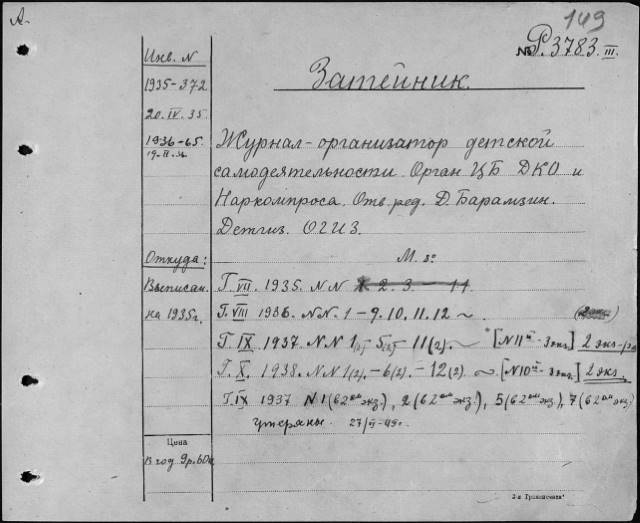 А.
149
№ Р. 3783. III.
Инв. N
1935-372
20.IV.35.
1936-65.
Затейник.
Журнал-организатор детской
самодеятельности. Орган ЦБ ДКО и
Наркомпроса. Отв. ред. Д. Барамзин.
Детгиз. ОГИЗ.
М. 8°
Откуда:
Выписан.
на 1935г.
Г. VII. 1935. NN 2. 3. — 11.
Г. VIII 1936. NN. 1 — 9. 10. 11. 12 ~.
Г. IX. 1937. NN 1(2)- 5(2)- 11(2). ~ [N11й- 3экз.] 2 экз
Г. X. 1938. NN 1(2).-6(2).-12(2). ~ [N10й- 3экз.] 2 экз.
Г. IX 1937 N1(62ой экз.), 2 (62ой экз.), 5 (62ой экз.), 7 (62ой экз.)
утеряны. 27/VI-49г.
Цена
В год 9р.60к